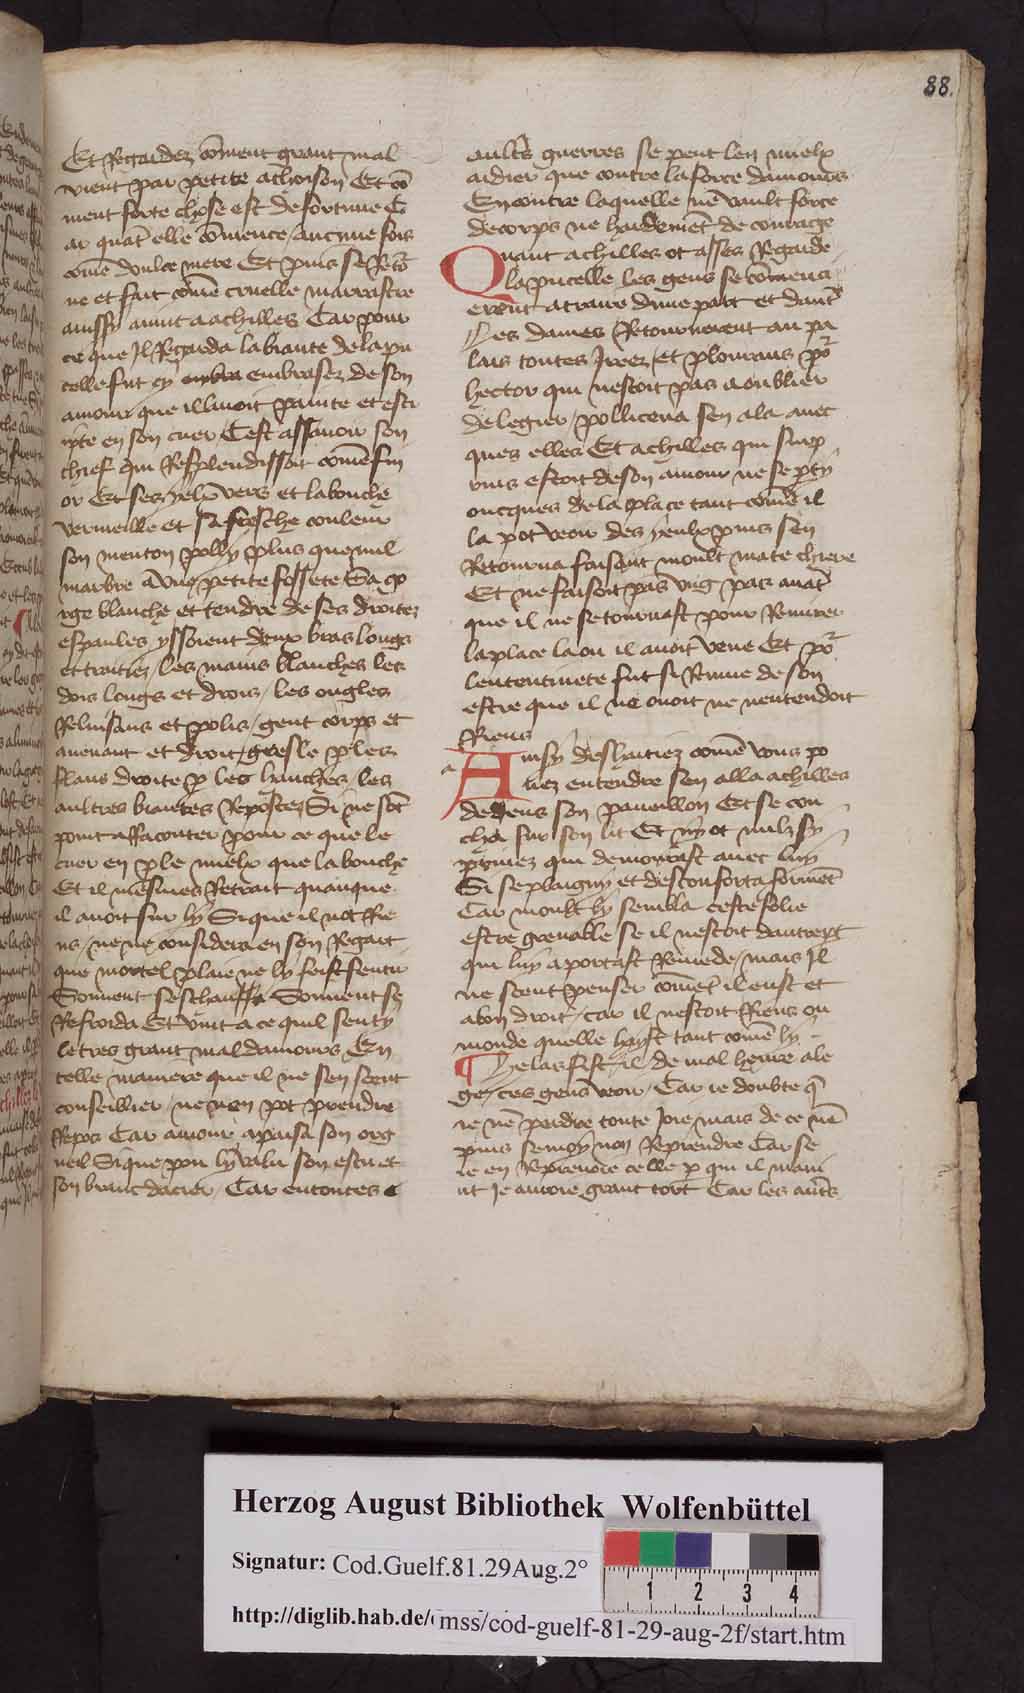 88.
Et Regardez cõment grant mal
vient par petite achoison Et cõ
ment forte chose est de fortune C
ar quãt elle cõmence aucune fois
cõme doulce mere Et puis se Retõ
ne et fait cõme cruelle marrastre
aussy avint a achilles Car pour
ce que Il Regarda la biaute de la pu
celle fut cy embra embrasez de son
amour que il lavoit painte et escr
ipte en son cuer Cest assavoir son
chief qui Resplendissoit cõme fin
or Et ses yeulx vers et la bouche
vermeille et sa fresche couleur
son menton polly plus que nul
marbre a une petite fossete Sa go
rge blanche et tendre de ses droitez
espaules yssoient deux bras longs
et traitiez / les mains blanches les
dois longs et drois / les ongles
Reluisans et polis / gent corps et
avenant et droit / gresle p les
flans droite p les hanches / les
aultres biautes Repostez Si ne sõt
point a Raconter pour ce que le
cuer en p le mielx que la bouche
Et il mesmes Retrait quanque
il avoit sur ly Si que il not Rie
ns / ne ne considera en son Regart
que mortel plaie ne ly feist sentir
Souvent seschauffa Souvent se
Refroida Et vint a ce quil senty
le tres grant mal damours En
telle maniere que il ne sen scent
conseillier / ne nen pot prendre
Repos Car amour apaisa son org
ueil Si que pou ly valu son escu et
son branc dacier / Car encontre
aultres guerres se peut len mielx
aidier que contre la force damours
Encontre laquelle ne vault force
de corps ne hardemẽt de courage
Quant achilles ot asses Regarde
la pucelle les gens se cõmenc
erent a traire dune part et dautre
Les dames Retournerent au pa
lais toutes Irees / et plourans por
hector qui nestoit pas a oublier
de legier / pollicena sen ala avec
ques elles Et achilles qui surp
rins estoit de son amour ne se pty
oncques de la place tant cõme il
la pot veoir des yeulx puis sen
Retourna faisant moult mate chiere
Et ne faisoit pas ung pas avãt
que il ne se tournast pour Remirer
la place la ou il avoit veue Et por
lententivete fut si Remue de son
estre que il ne ouoit ne nentendoit
Riens
a
Ainsy deshaitiez cõme vous po
viez entendre sen alla achilles
dedens son paveillon Et se cou
cha sur son lit Et ny ot nulz sy
privez qui demourast avec luy
Si se plaigny et desconforta formẽt
Car moult ly sembla ceste folie
estre grevable se il nestoit dautruy
qui luy aportast Remede / mais Il
ne scent penser cõmẽt il eust et
a bon droit / car il nestoit Riens ou
monde quelle hayst tant cõme ly
¶ Helas fist il de mal heure ale
ge / ces gens veoir / Car ie doubte q
ie nẽ perdre toute Joie mais de ce nẽ
puis se moy non Reprendre Car se
ie en Reprenoie celle p qui il mavi
nt Je auroie grant tort Car les autres
Herzog August Bibliothek Wolfenbüttel
Signatur: Cod.Guelf.81.29Aug.2°
1 2 3 4
http://diglib.hab.de/ mss/cod-guelf-81-29-aug-2f/start.htm